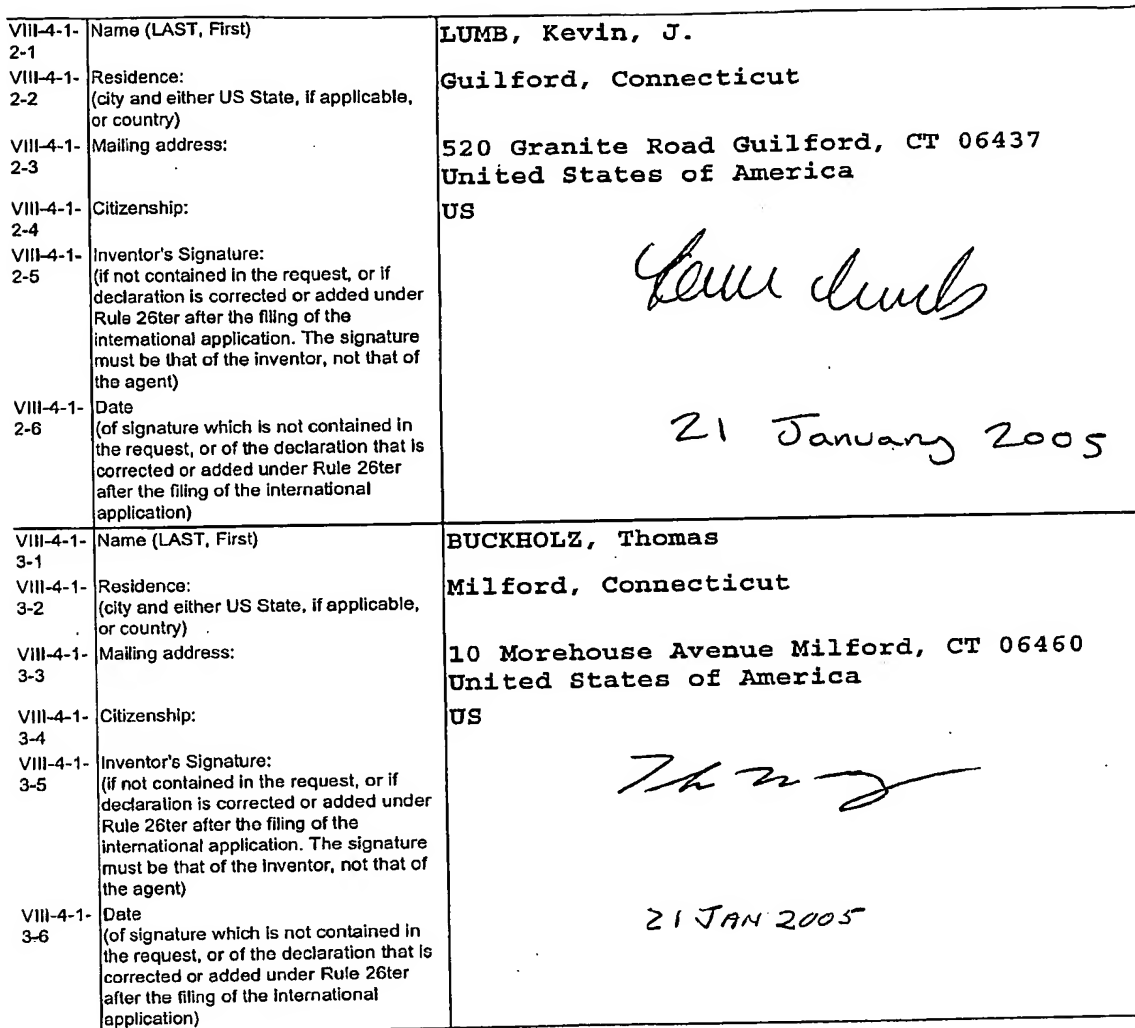 VIII-4-1- Name (LAST, First) LUMB, Kevin, J.
2-1
VIII-4-1- Residence: Guilford, Connecticut
2-2 (city and either US State, if applicable,
or country)
VIII-4-1- Mailing address: 520 Granite Road Guilford, CT 06437
2-3 United States of America
VIII-4-1- Citizenship: US
2-4
VIII-4-1- Inventor's Signature:
2-5 (if not contained in the request, or if
declaration is corrected or added under
Rule 26ter after the filing of the
international application. The signature
must be that of the inventor, not that of
the agent)
VIII-4-1- Date
2-6 (of signature which is not contained in
the request, or of the declaration that is
corrected or added under Rule 26ter
after the filing of the international
application)
21 January 2005
VIII-4-1- Name (LAST, First) BUCKHOLZ, Thomas
3-1
VIII-4-1- Residence: Milford, Connecticut
3-2 (city and either US State, if applicable,
or country)
VIII-4-1- Mailing address: 10 Morehouse Avenue Milford, CT 06460
3-3 United States of America
VIII-4-1- Citizenship: US
3-4
VIII-4-1- Inventor's Signature:
3-5 (if not contained in the request, or if
declaration is corrected or added under
Rule 26ter after the filing of the
international application. The signature
must be that of the inventor, not that of
the agent)
VIII-4-1- Date
3-6 (of signature which is not contained in
the request, or of the declaration that is
corrected or added under Rule 26ter
after the filing of the international
application)
21 JAN 2005